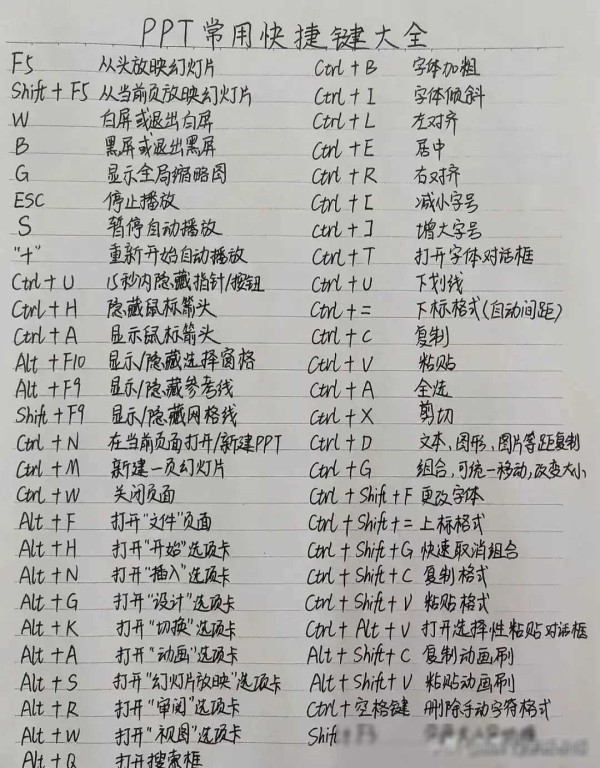 PPT常用快捷键大全
F5 从头放映幻灯片
Shift + F5 从当前页放映幻灯片
W 白屏或退出白屏
B 黑屏或退出黑屏
G 显示全局缩略图
ESC 停止播放
S 暂停自动播放
"+" 重新开始自动播放
Ctrl + U 15秒内隐藏指针/按钮
Ctrl + H 隐藏鼠标箭头
Ctrl + A 显示鼠标箭头
Alt + F10 显示/隐藏选择窗格
Alt + F9 显示/隐藏参考线
Shift + F9 显示/隐藏网格线
Ctrl + N 在当前页面打开/新建PPT
Ctrl + M 新建一页幻灯片
Ctrl + W 关闭页面
Alt + F 打开"文件"页面
Alt + H 打开"开始"选项卡
Alt + N 打开"插入"选项卡
Alt + G 打开"设计"选项卡
Alt + K 打开"切换"选项卡
Alt + A 打开"动画"选项卡
Alt + S 打开"幻灯片放映"选项卡
Alt + R 打开"审阅"选项卡
Alt + W 打开"视图"选项卡
Alt + Q 打开搜索框
Ctrl + B 字体加粗
Ctrl + I 字体倾斜
Ctrl + L 左对齐
Ctrl + E 居中
Ctrl + R 右对齐
Ctrl + [ 减小字号
Ctrl + ] 增大字号
Ctrl + T 打开字体对话框
Ctrl + U 下划线
Ctrl + = 下标格式(自动间距)
Ctrl + C 复制
Ctrl + V 粘贴
Ctrl + A 全选
Ctrl + X 剪切
Ctrl + D 文本、图形、图片等距复制
Ctrl + G 组合,可统一移动,改变大小
Ctrl + Shift + F 更改字体
Ctrl + Shift + = 上标格式
Ctrl + Shift + G 快速取消组合
Ctrl + Shift + C 复制格式
Ctrl + Shift + V 粘贴格式
Ctrl + Alt + V 打开选择性粘贴对话框
Alt + Shift + C 复制动画刷
Alt + Shift + V 粘贴动画刷
Ctrl + 空格键 删除手动字符格式
Shift